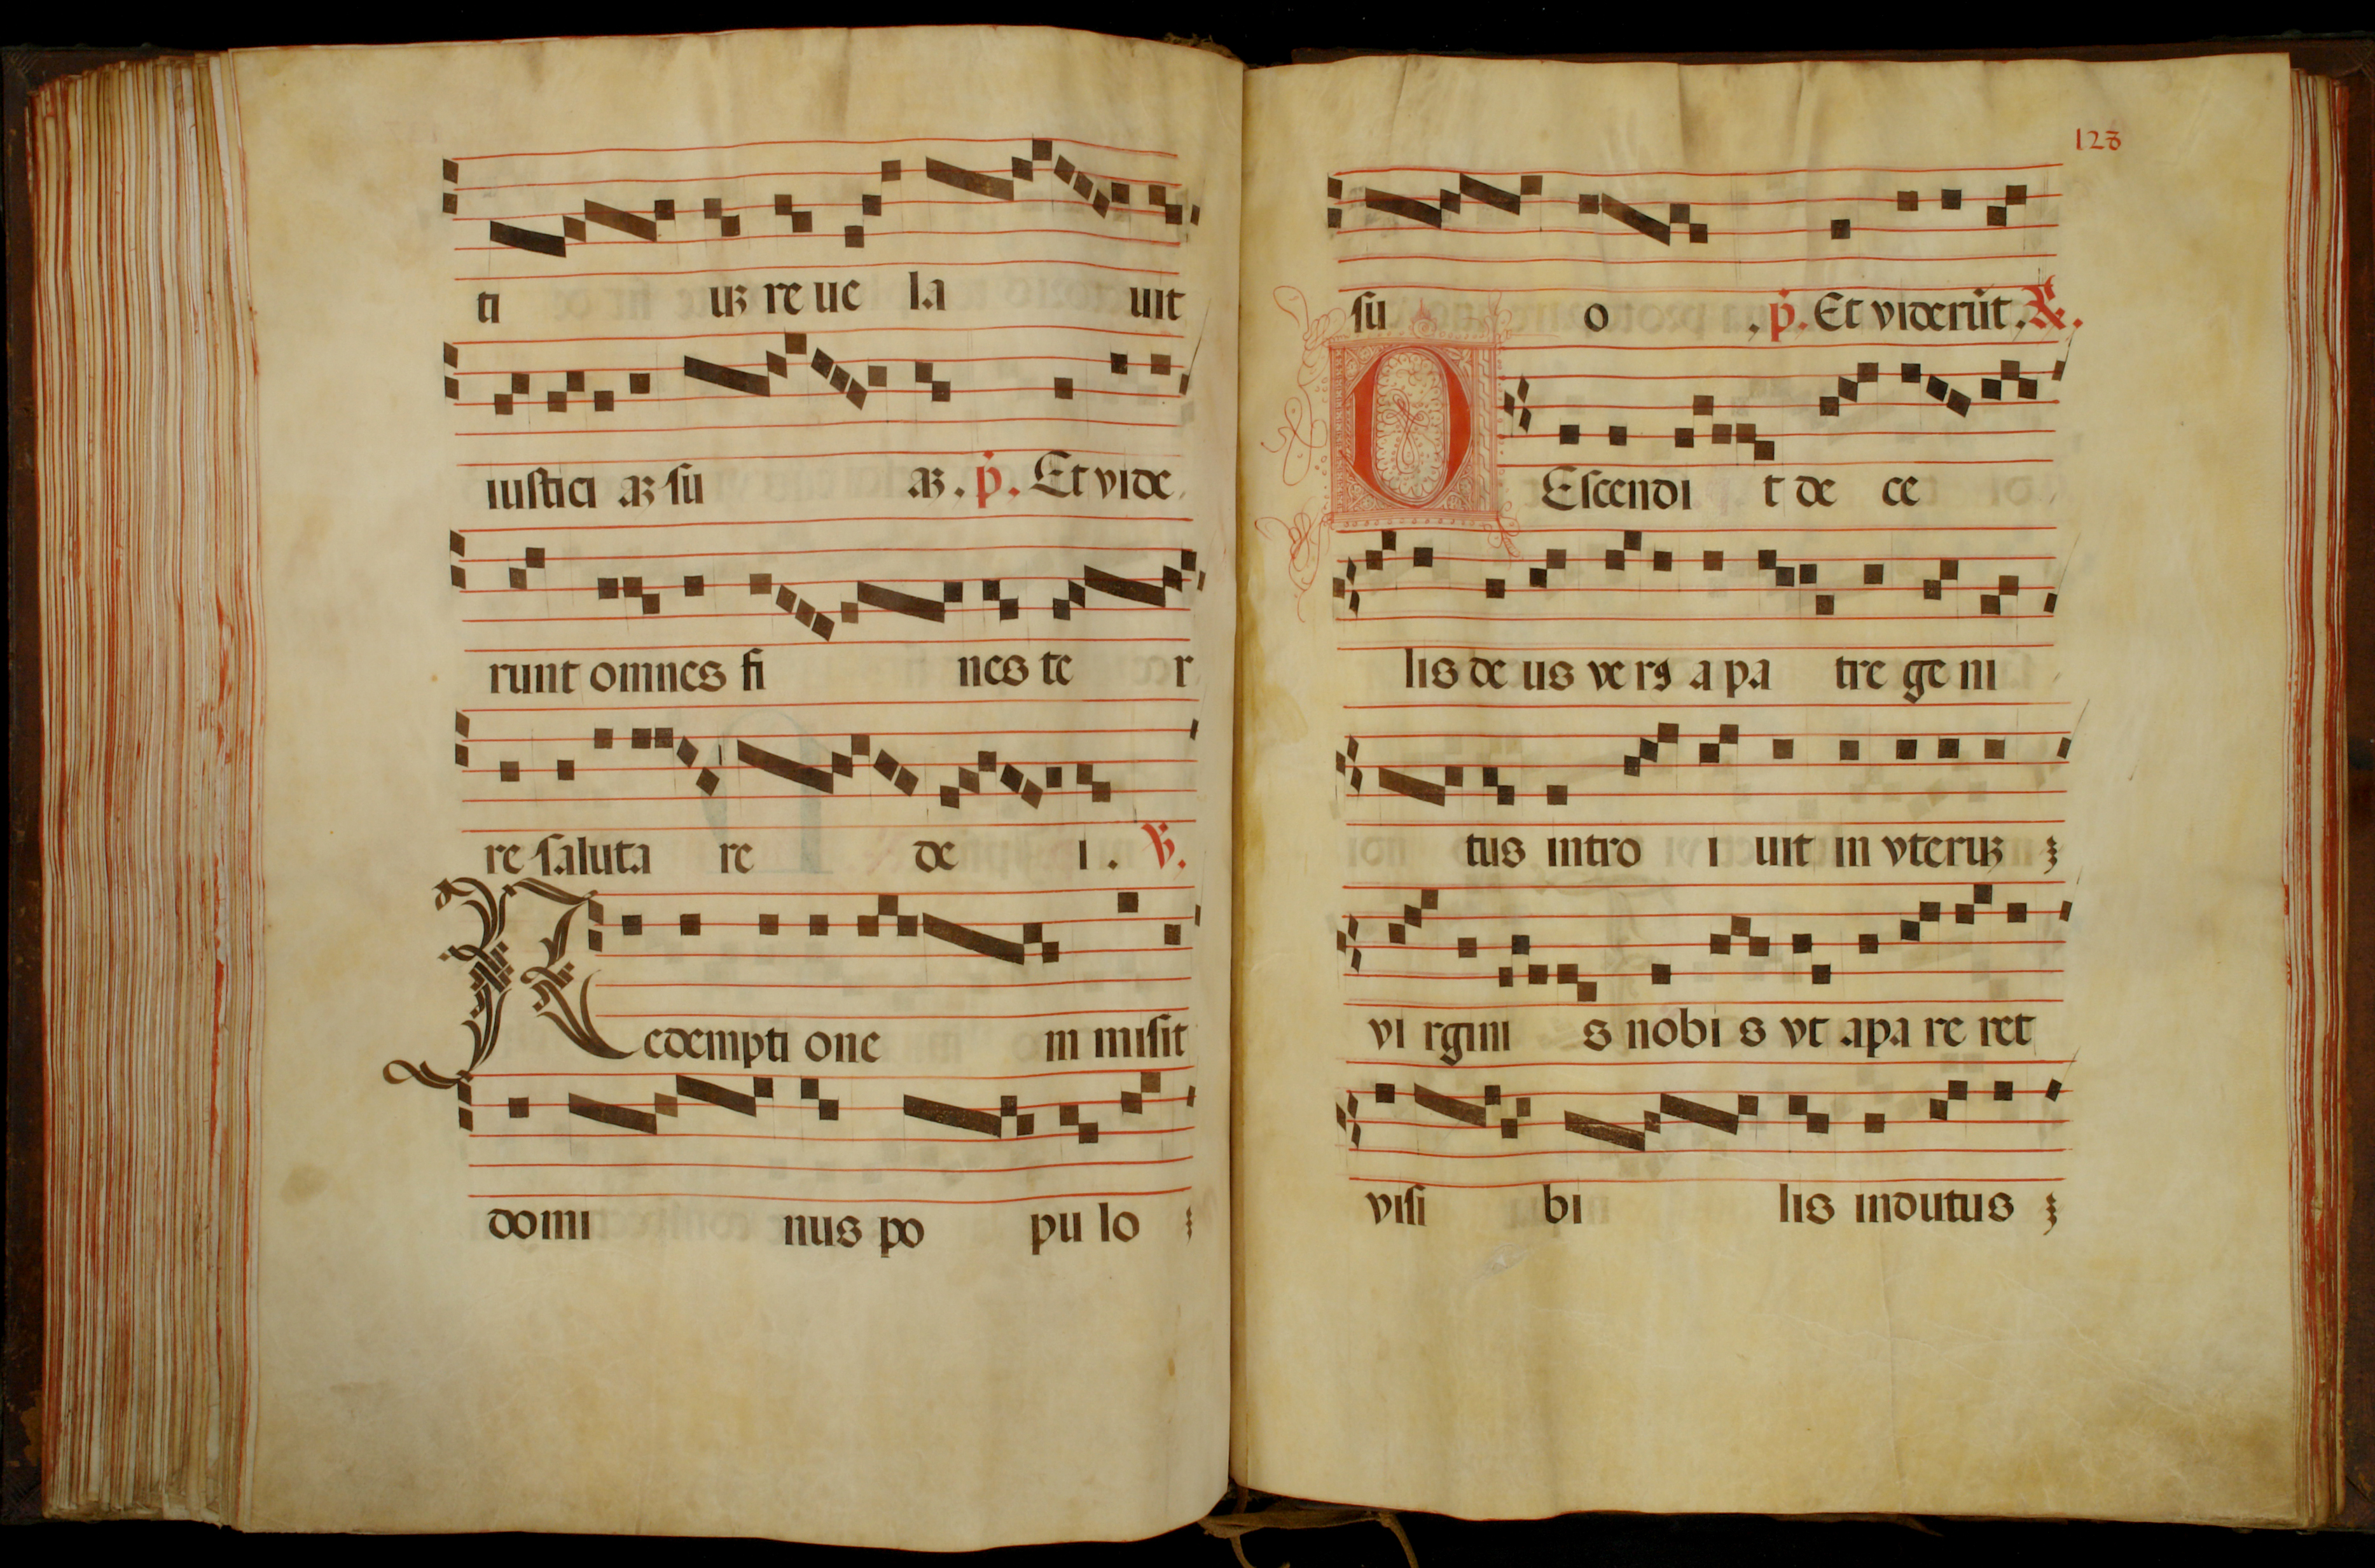 ti uꝫ re ue la uit
iustici aꝫ su aꝫ. p̄. Et vide
runt omnes fi nes te r
re saluta re de i. ℣.
Redempti one m misit
domi nus po pu lo
128
su o . p̄. Et viderūt. ℟.
DEscendi t de ce
lis de us ve rꝰ a pa tre ge ni
tus intro i uit in vteruꝫ
vi rgini s nobi s vt apa re ret
visi bi lis indutus